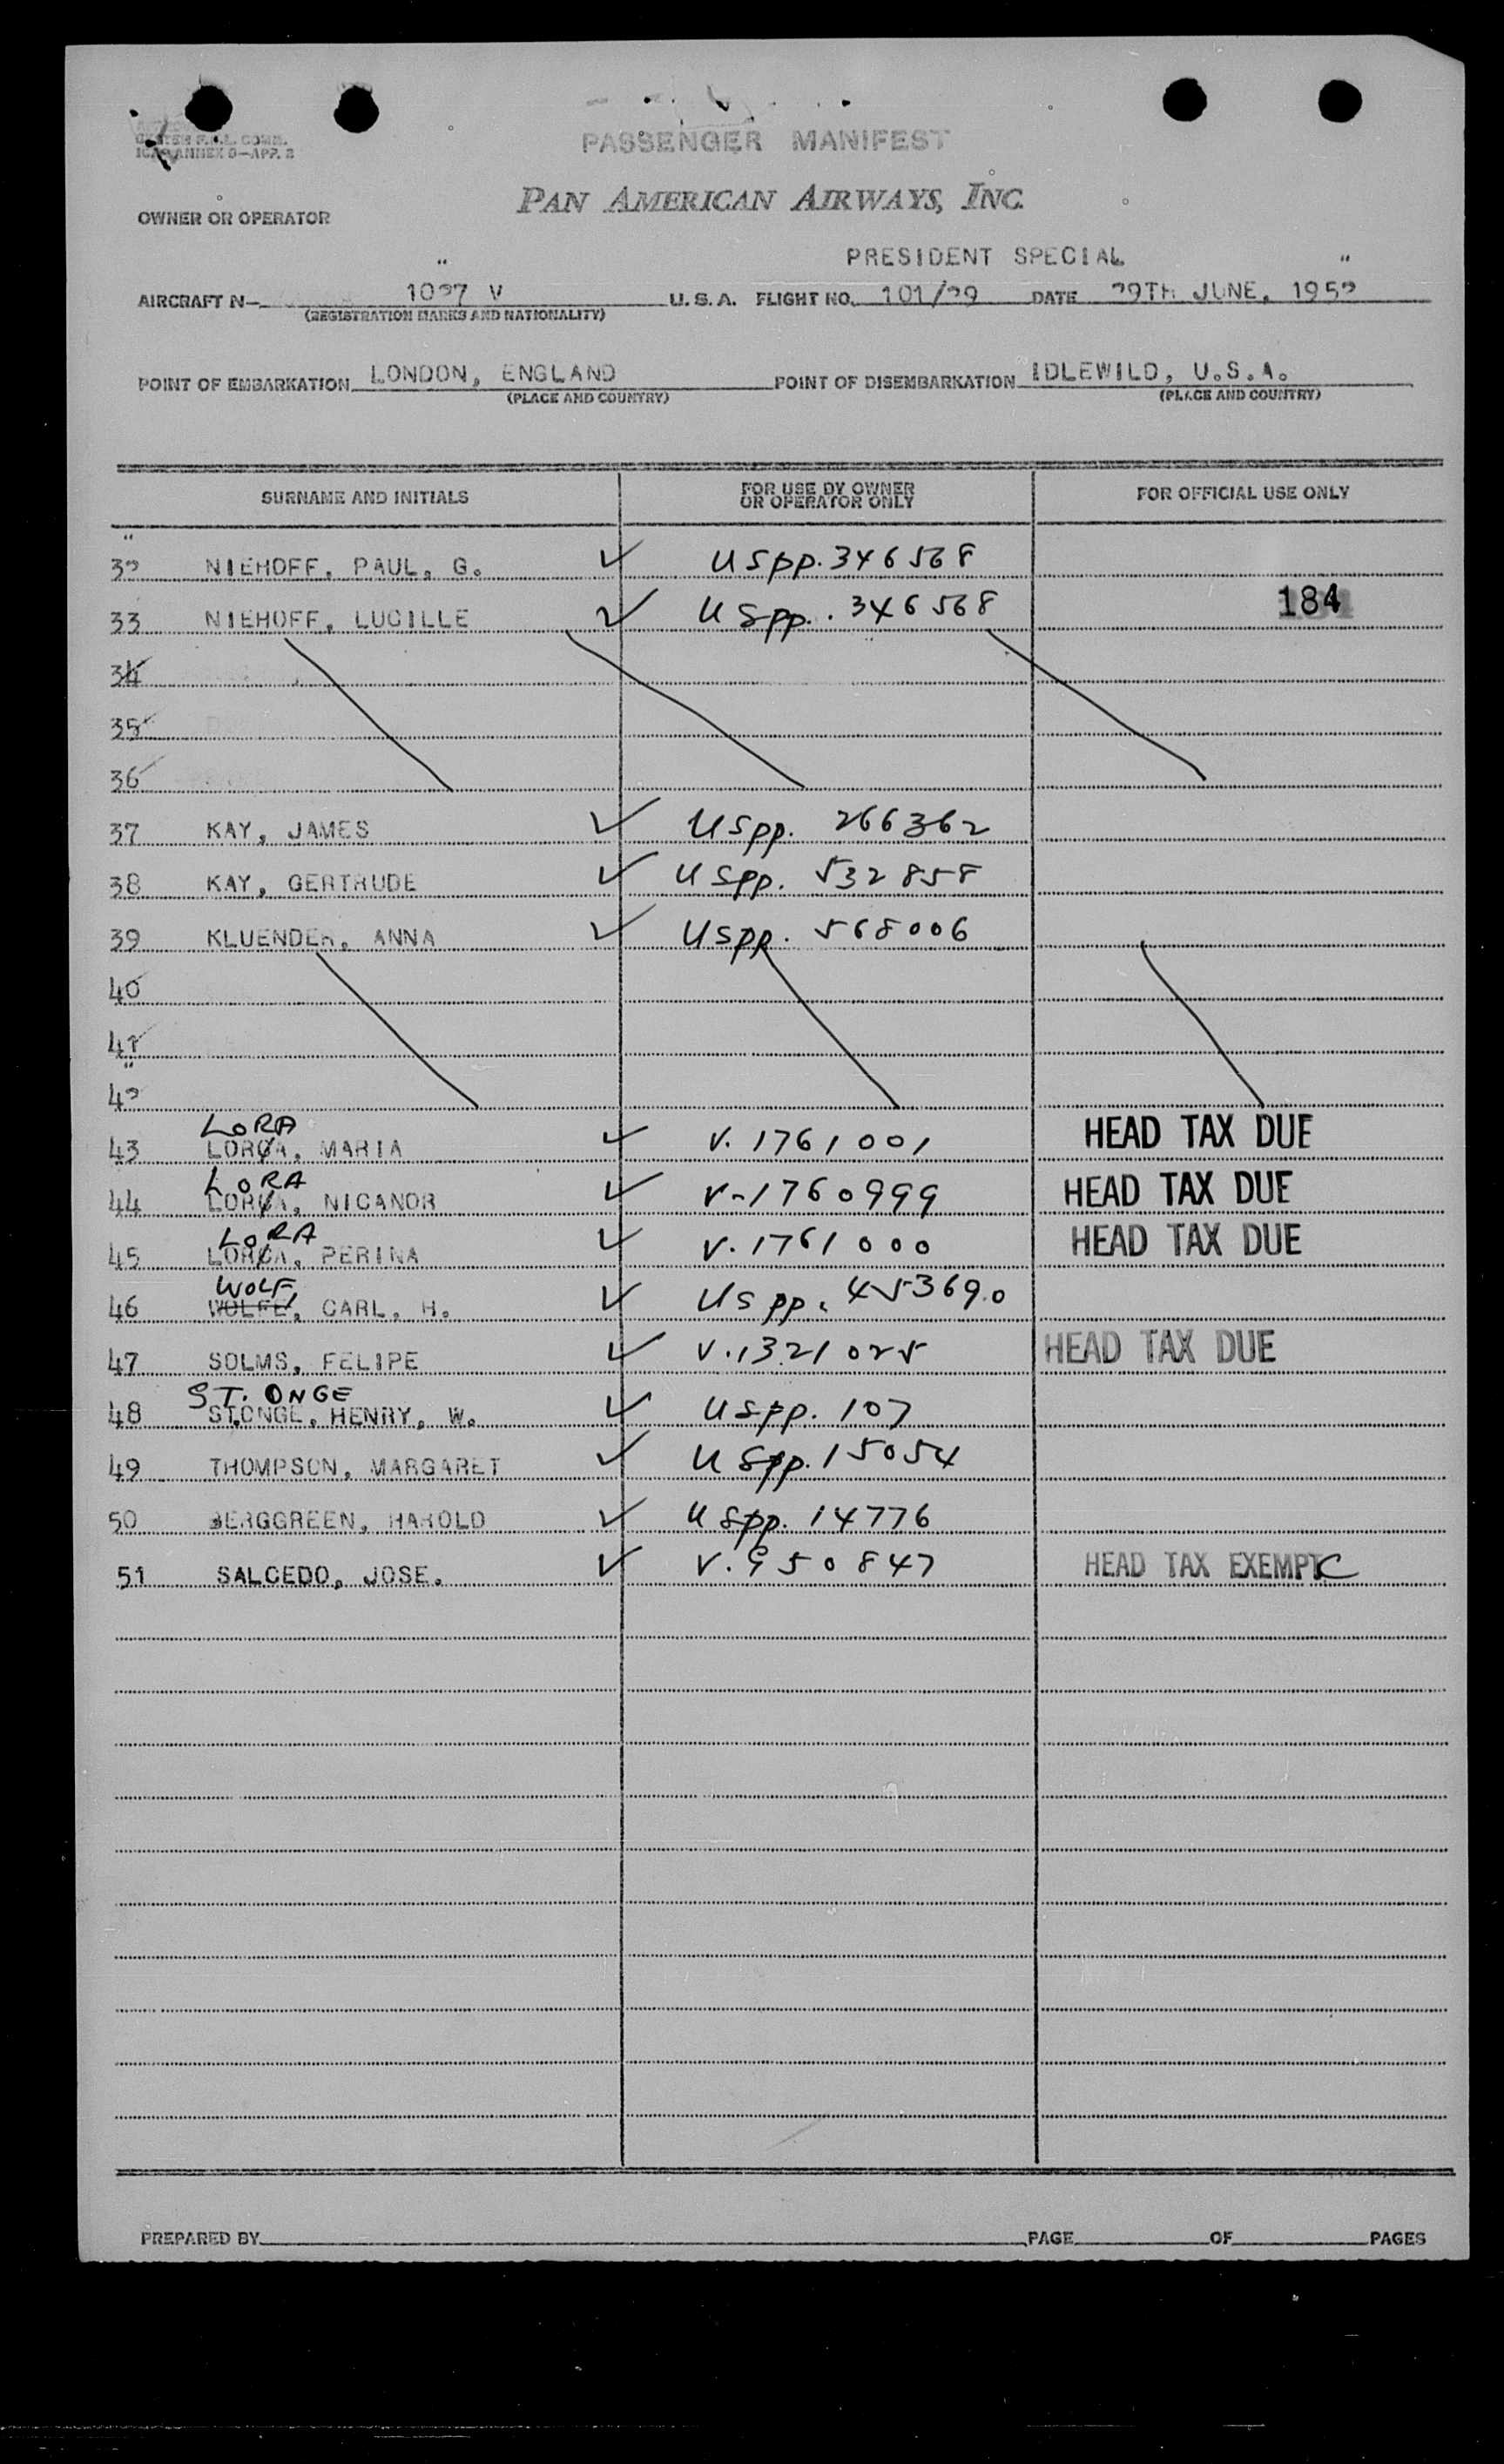 PASSENGER MANIFEST
ICAO ANNEX 9—APP. 2
PAN AMERICAN AIRWAYS, INC.
OWNER OR OPERATOR
PRESIDENT SPECIAL
AIRCRAFT N— 1027 V U.S.A. FLIGHT NO. 101/29 DATE 29TH JUNE, 1952
(REGISTRATION MARKS AND NATIONALITY)
POINT OF EMBARKATION LONDON, ENGLAND POINT OF DISEMBARKATION IDLEWILD, U.S.A.
(PLACE AND COUNTRY) (PLACE AND COUNTRY)
SURNAME AND INITIALS FOR USE BY OWNER OR OPERATOR ONLY FOR OFFICIAL USE ONLY
32 NIEHOFF, PAUL, G. ✓ USpp. 346568
33 NIEHOFF, LUCILLE ✓ USpp. 346568 184
34
35
36
37 KAY, JAMES ✓ USpp. 266362
38 KAY, GERTRUDE ✓ USpp. 532858
39 KLUENDER, ANNA ✓ USpp. 568006
40
41
42
LORA
43 LORCA, MARIA ✓ V. 1761001 HEAD TAX DUE
LORA
44 LORCA, NICANOR ✓ V-1760999 HEAD TAX DUE
LORA
45 LORCA, PERINA ✓ V. 1761000 HEAD TAX DUE
WOLF,
46 WOLFE, CARL, H. ✓ USpp. 453690
47 SOLMS, FELIPE ✓ V. 1321025 HEAD TAX DUE
ST. ONGE
48 ST.ONGE, HENRY, W. ✓ USpp. 107
49 THOMPSON, MARGARET ✓ USpp. 15054
50 BERGGREEN, HAROLD ✓ USpp. 14776
51 SALCEDO, JOSE. ✓ V. 950847 HEAD TAX EXEMPT C
PREPARED BY PAGE OF PAGES